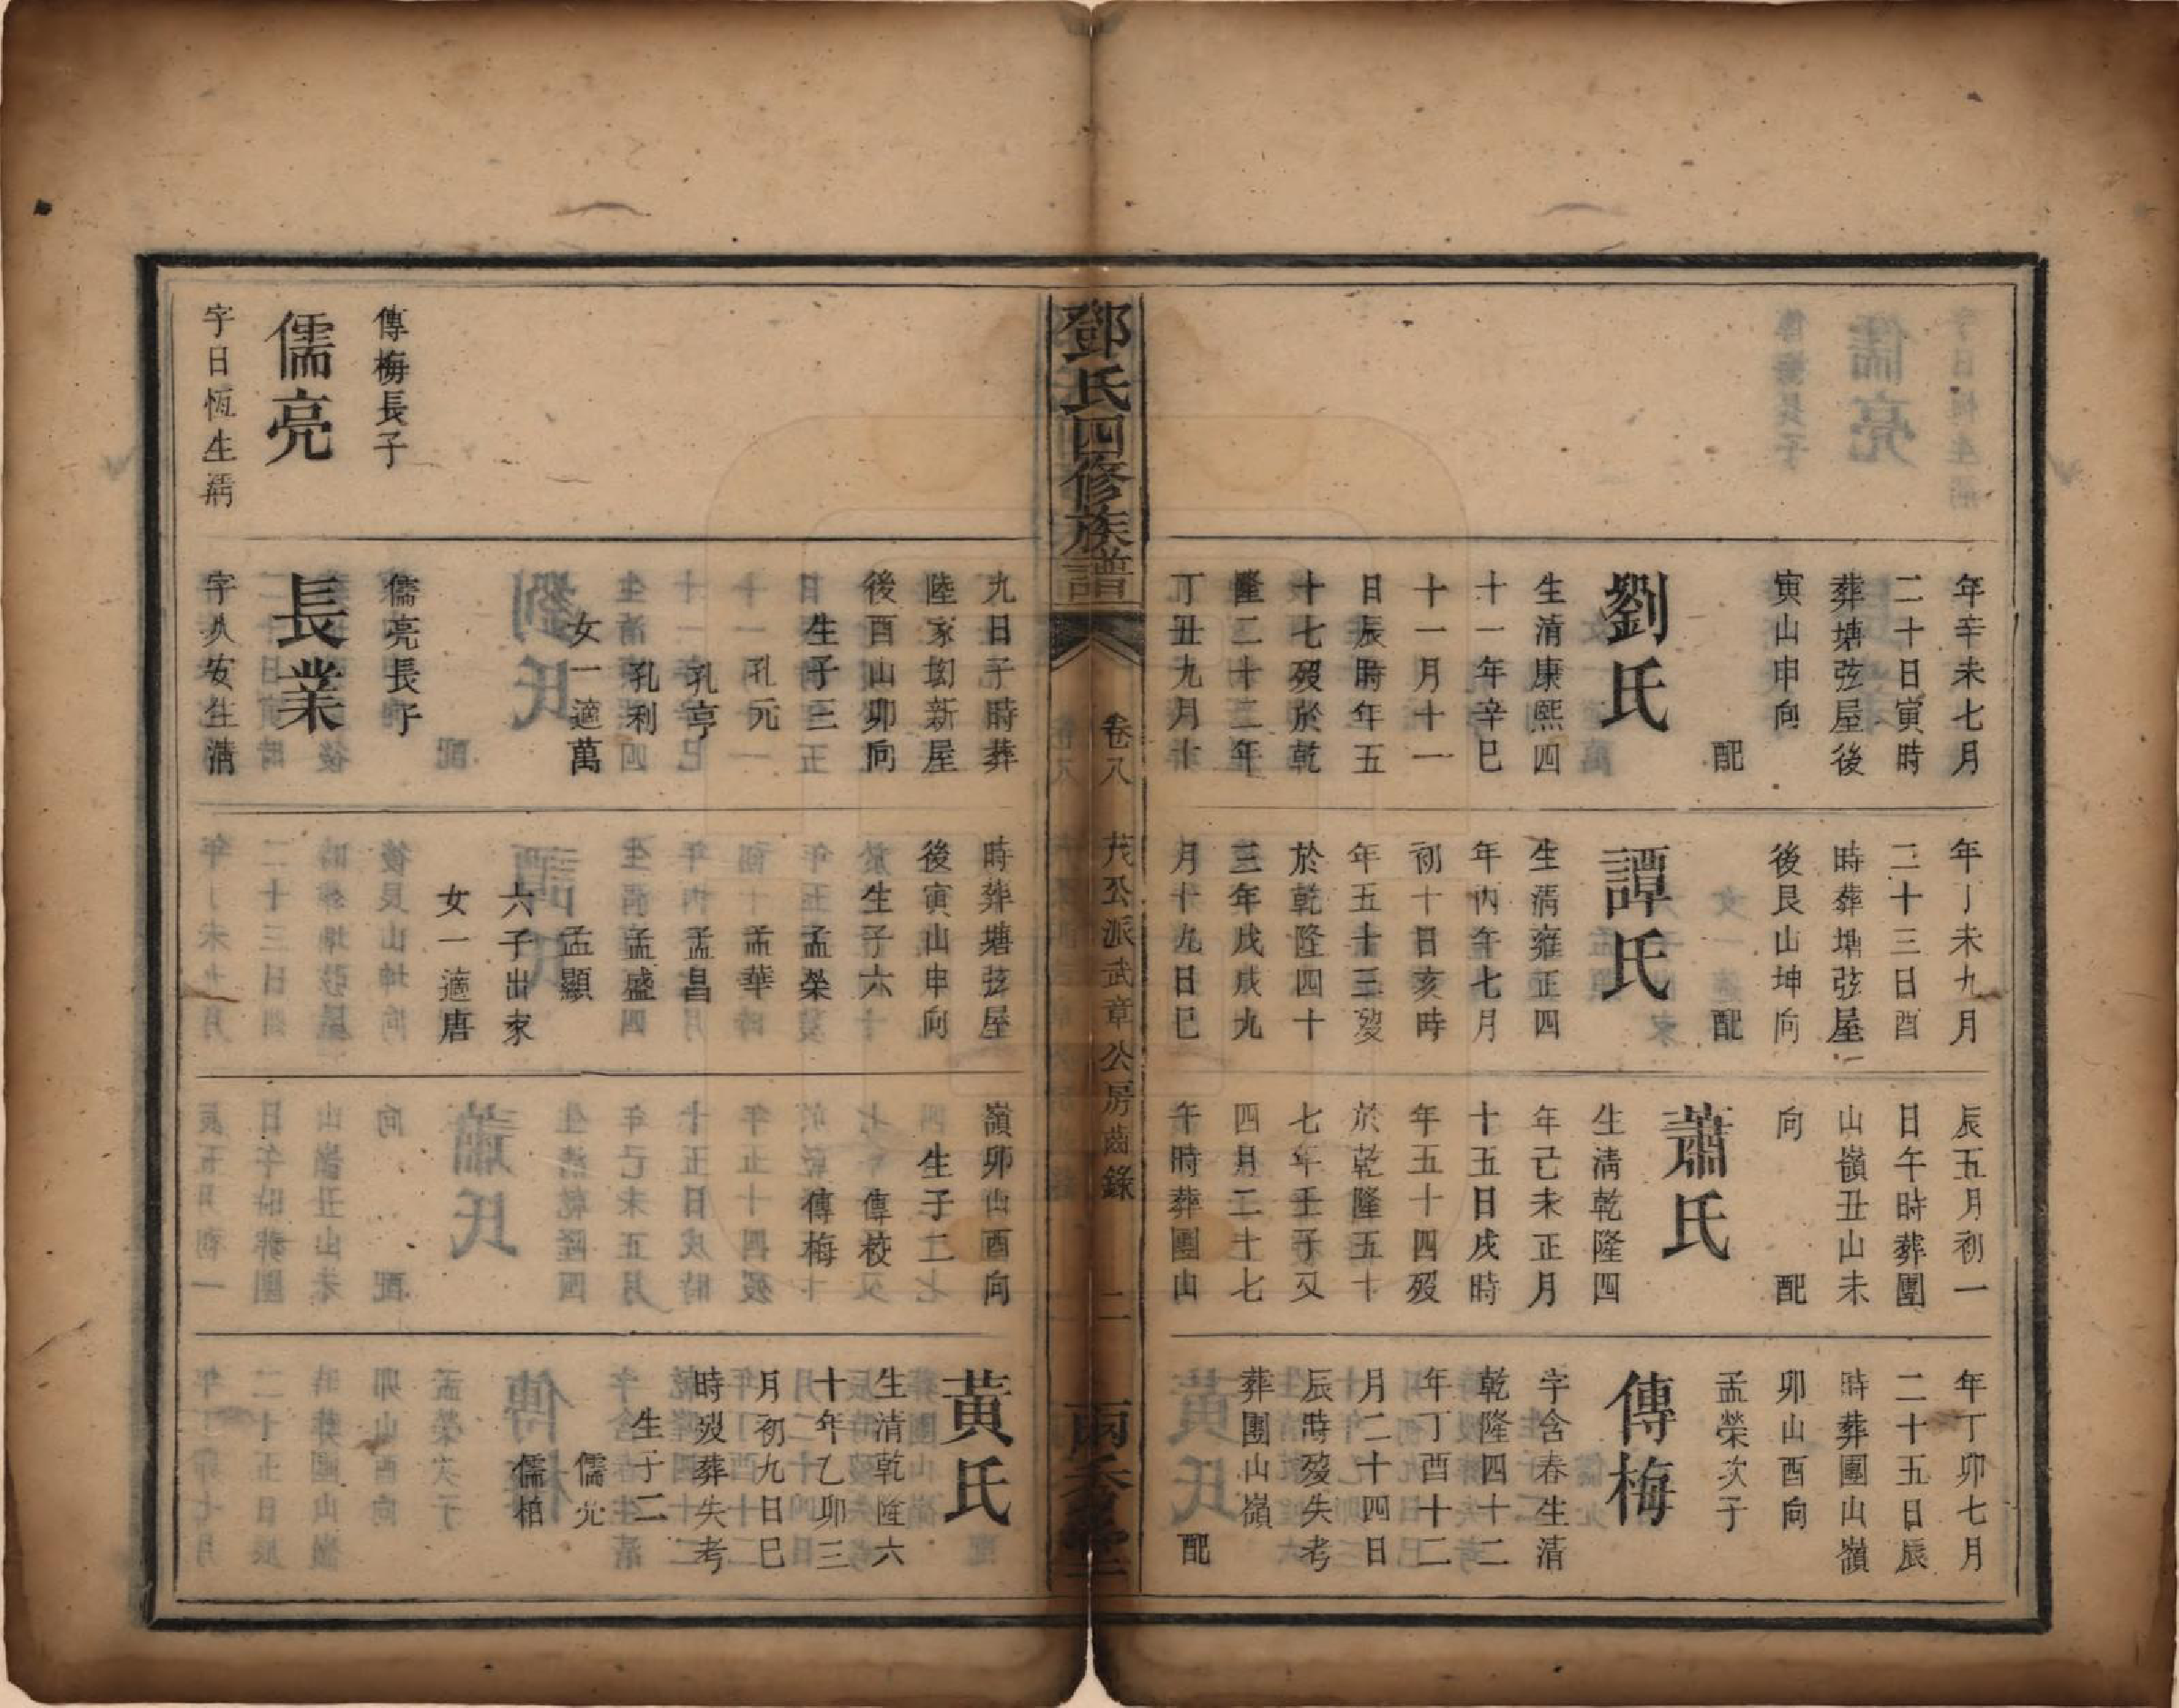 年辛未七月
二十日寅時
葬塘弦屋後
寅山申向
配
劉氏
生清康熙四
十一年辛巳
十一月十一
日辰時年五
十七歿於乾
隆二十二年
丁丑九月十
年丁未九月
二十三日酉
時葬塘弦屋
後艮山坤向
配
譚氏
生清雍正四
年丙午七月
初十日亥時
年五十三歿
於乾隆四十
三年戊戌九
月十九日巳
辰五月初一
日午時葬團
山嶺丑山未
向
配
蕭氏
生清乾隆四
年己未正月
十五日戌時
年五十四歿
於乾隆五十
七年壬子又
四月二十七
午時葬團山
年丁卯七月
二十五日辰
時葬團山嶺
卯山酉向
孟榮次子
傳梅
字含春生清
乾隆四十二
年丁酉十二
月二十四日
辰時歿失考
葬團山嶺
配
鄧氏四修族譜
卷八
茂公派武章公房齒錄
二
傳梅長子
儒亮
字日恆生清
九日子時葬
陸家坳新屋
後酉山卯向
生子三
孔元
孔亨
孔利
女一適萬
儒亮長子
長業
字人安生清
時葬塘弦屋
後寅山申向
生子六
孟榮
孟華
孟昌
孟盛
孟顯
六子出家
女一適唐
嶺卯山酉向
生子二
傳校
傳梅
黃氏
生清乾隆六
十年乙卯三
月初九日巳
時歿葬失考
生子二
儒光
儒柏